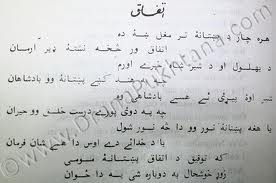 اتفاق
هره چار د پښتانهٔ تر مغل ښهٔ ده
اتفاق ور څخه نشته ډیر ارمان
د بهلول او د شیر شاه خبرې اورم
چه په هند کښې پښتانهٔ وو بادشاهان
شپږ اوهٔ پیړۍ ئے هسے بادشاهي وه
چه په دوی پورې درست خلق وو حیران
یا هغه پښتانهٔ نور وو دا څه نور شول
یا د خدائے دے اوس دا هسے شان فرمان
که توفیق د اتفاق پښتانهٔ مومي
زوړ خوشحال به دوباره شي په دا ځوان